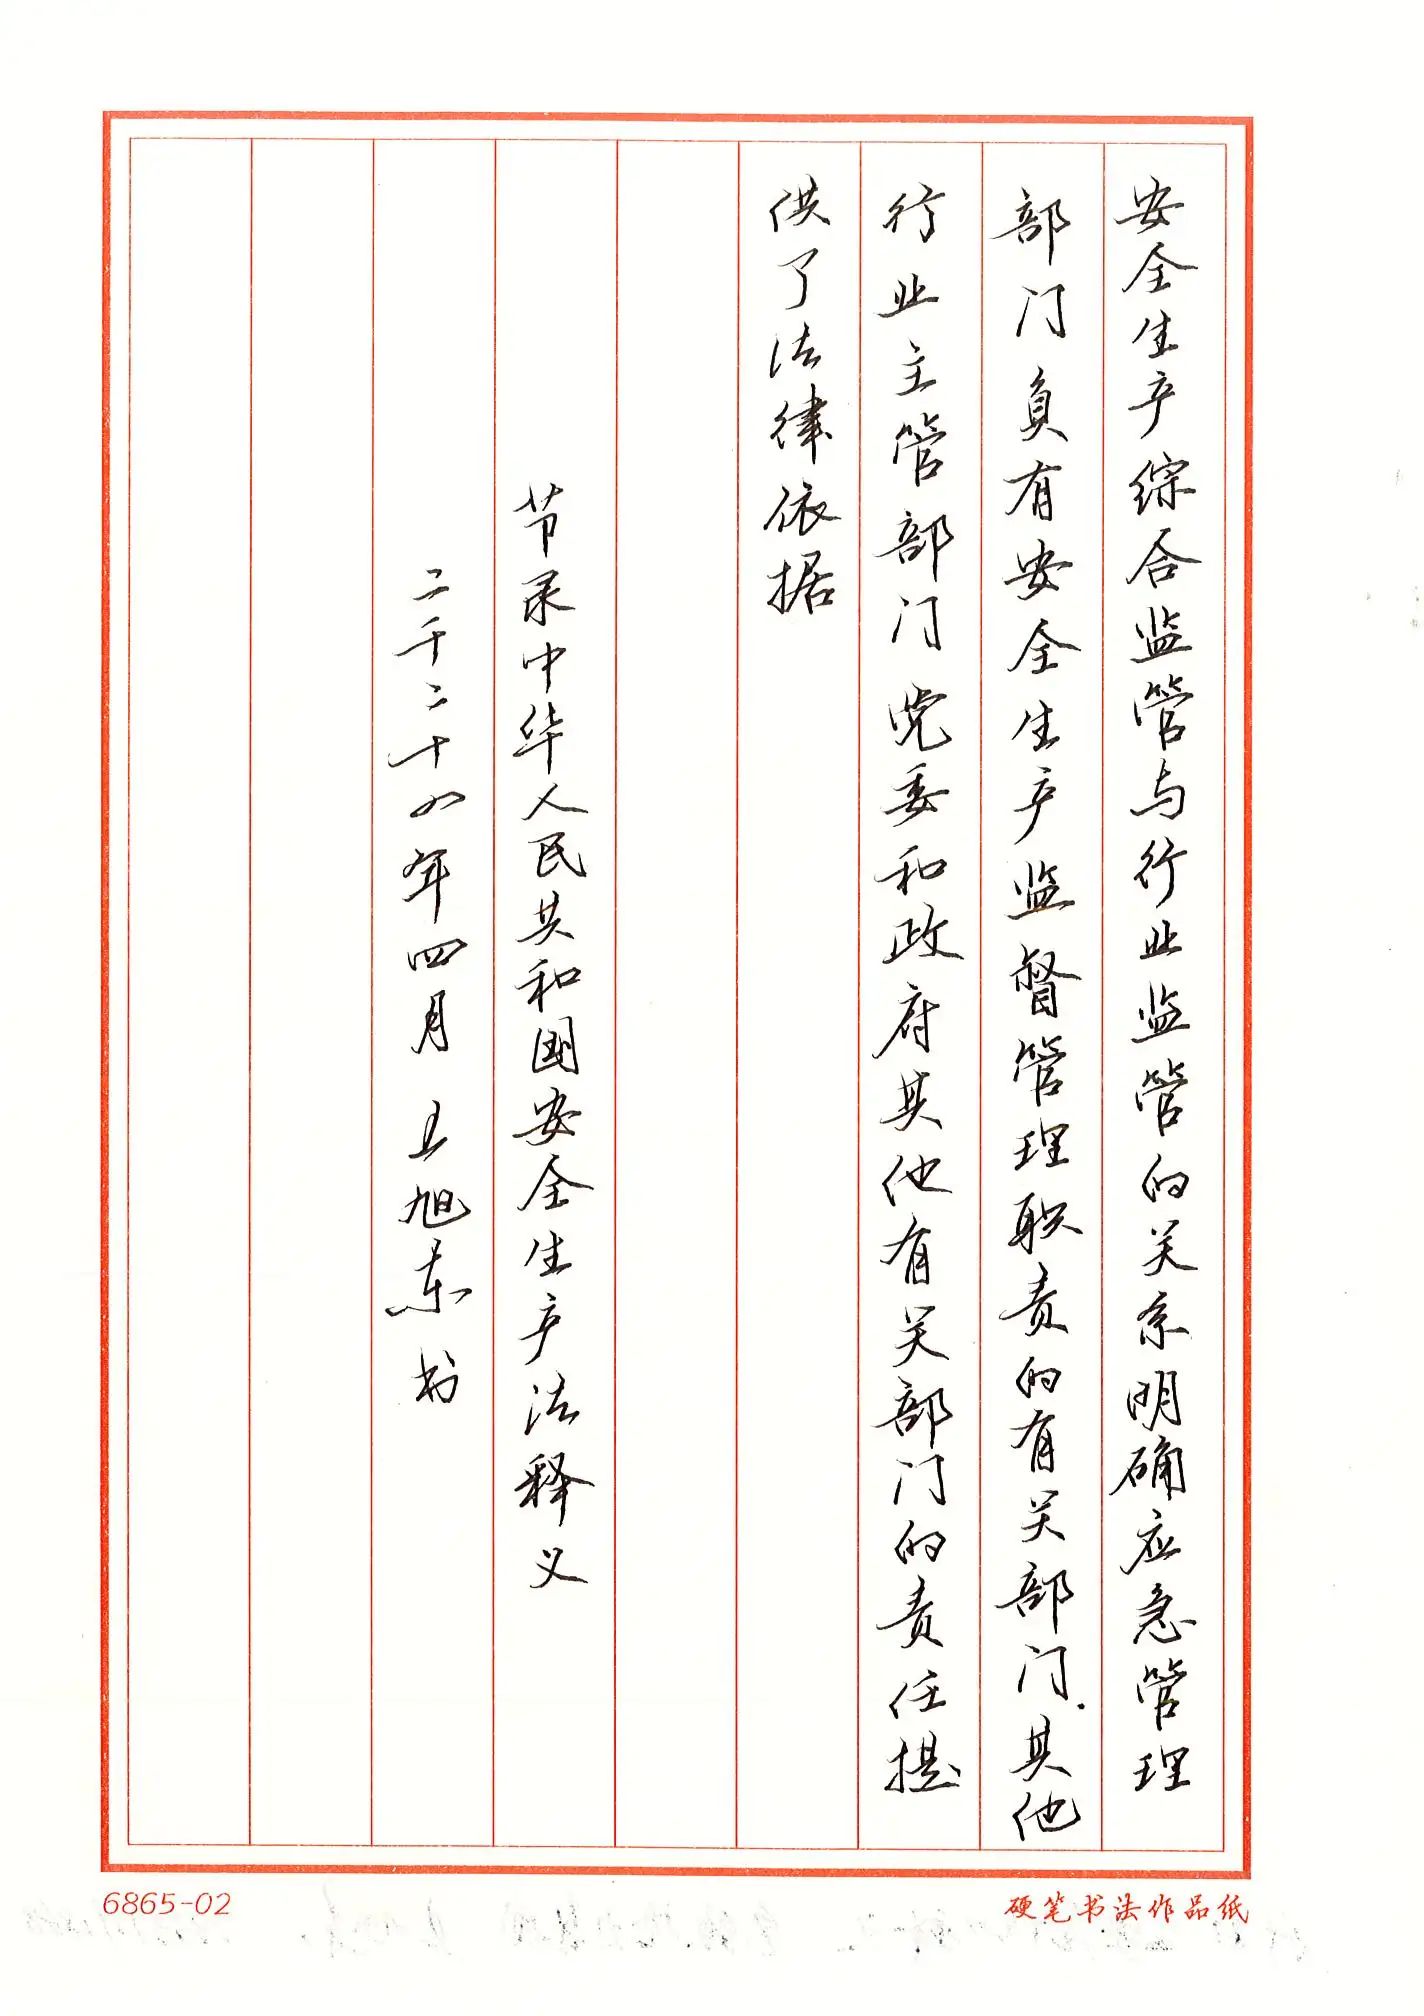 安全生产综合监管与行业监管的关系明确应急管理
部门负有安全生产监督管理职责的有关部门.其他
行业主管部门党委和政府其他有关部门的责任提
供了法律依据
节录中华人民共和国安全生产法释义
二千二十四年四月 王旭东书
6865-02
硬笔书法作品纸